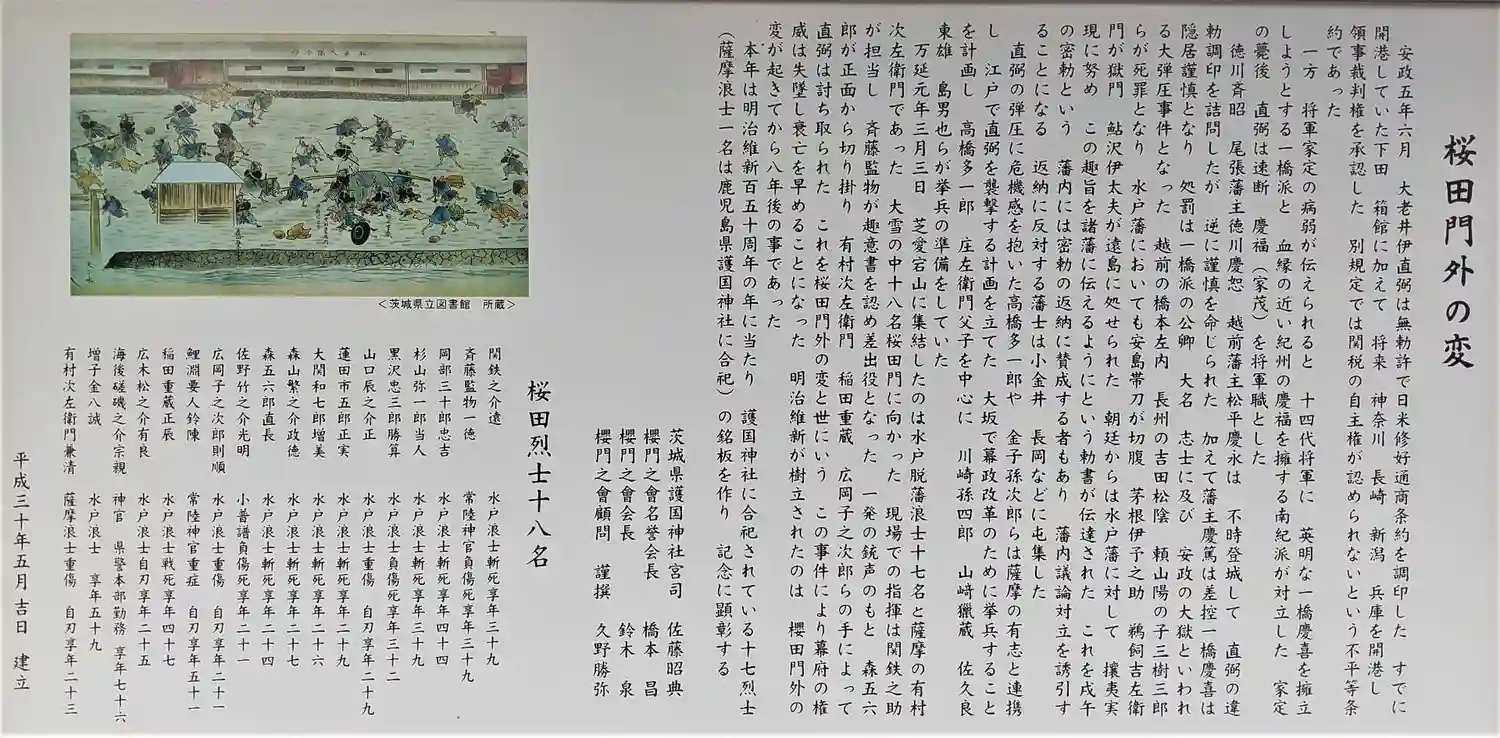 桜田門外の変
安政五年六月 大老井伊直弼は無勅許で日米修好通商条約を調印した すでに
開港していた下田 箱館に加えて 将来 神奈川 長崎 新潟 兵庫を開港し
領事裁判権を承認した 別規定では関税の自主権が認められないという不平等条
約であった
一方 将軍家定の病弱が伝えられると 十四代将軍に 英明な一橋慶喜を擁立
しようとする一橋派と 血縁の近い紀州の慶福を擁する南紀派が対立した 家定
の薨後 直弼は速断 慶福(家茂)を将軍職とした
徳川斉昭 尾張藩主徳川慶恕 越前藩主松平慶永は 不時登城して 直弼の違
勅調印を詰問したが 逆に謹慎を命じられた 加えて藩主慶篤は差控一橋慶喜は
隠居謹慎となり 処罰は一橋派の公卿 大名 志士に及び 安政の大獄といわれ
る大弾圧事件となった 越前の橋本左内 長州の吉田松陰 頼山陽の子三樹三郎
らが死罪となり 水戸藩においても安島帯刀が切腹 茅根伊予之助 鵜飼吉左衛
門が獄門 鮎沢伊太夫が遠島に処せられた 朝廷からは水戸藩に対して 攘夷実
現に努め この趣旨を諸藩に伝えるようにという勅書が伝達された これを戊午
の密勅という 藩内には密勅の返納に賛成する者もあり 藩内議論対立を誘引す
ることになる 返納に反対する藩士は小金井 長岡などに屯集した
直弼の弾圧に危機感を抱いた高橋多一郎や 金子孫次郎らは薩摩の有志と連携
し 江戸で直弼を襲撃する計画を立てた 大坂で幕政改革のために挙兵すること
を計画し 高橋多一郎 庄左衛門父子を中心に 川崎孫四郎 山﨑獵蔵 佐久良
東雄 島男也らが挙兵の準備をしていた
万延元年三月三日 芝愛宕山に集結したのは水戸脱藩浪士十七名と薩摩の有村
次左衛門であった 大雪の中十八名桜田門に向かった 現場での指揮は関鉄之助
が担当し 斉藤監物が趣意書を認め差出役となった 一発の銃声のもと 森五六
郎が正面から切り掛り 有村次左衛門 稲田重蔵 広岡子之次郎らの手によって
直弼は討ち取られた これを桜田門外の変と世にいう この事件により幕府の権
威は失墜し衰亡を早めることになった 明治維新が樹立されたのは 櫻田門外の
変が起きてから八年後の事であった
本年は明治維新百五十周年の年に当たり 護国神社に合祀されている十七烈士
(薩摩浪士一名は鹿児島県護国神社に合祀)の銘板を作り 記念に顕彰する
茨城県護国神社宮司 佐藤昭典
櫻門之會名誉会長 橋本 昌
櫻門之會会長 鈴木 泉
櫻門之會顧問 謹撰 久野勝弥
<茨城県立図書館 所蔵>
桜田烈士十八名
関鉄之介遠 水戸浪士斬死享年三十九
斉藤監物一徳 常陸神官負傷死享年三十九
岡部三十郎忠吉 水戸浪士斬死享年四十四
杉山弥一郎当人 水戸浪士斬死享年三十九
黒沢忠三郎勝算 水戸浪士負傷死享年三十二
山口辰之介正 水戸浪士重傷 自刃享年二十九
蓮田市五郎正実 水戸浪士斬死享年二十九
大関和七郎増美 水戸浪士斬死享年二十六
森山繁之介政徳 水戸浪士斬死享年二十七
森五六郎直長 水戸浪士斬死享年二十四
佐野竹之介光明 小普請負傷死享年二十一
広岡子之次郎則順 水戸浪士重傷 自刃享年二十一
鯉淵要人鈴陳 常陸神官重症 自刃享年五十一
稲田重蔵正辰 水戸浪士戦死享年四十七
広木松之介有良 水戸浪士自刃享年二十五
海後磋磯之介宗親 神官 県警本部勤務 享年七十六
増子金八誠 水戸浪士 享年五十九
有村次左衛門兼清 薩摩浪士重傷 自刃享年二十三
平成三十年五月吉日 建立